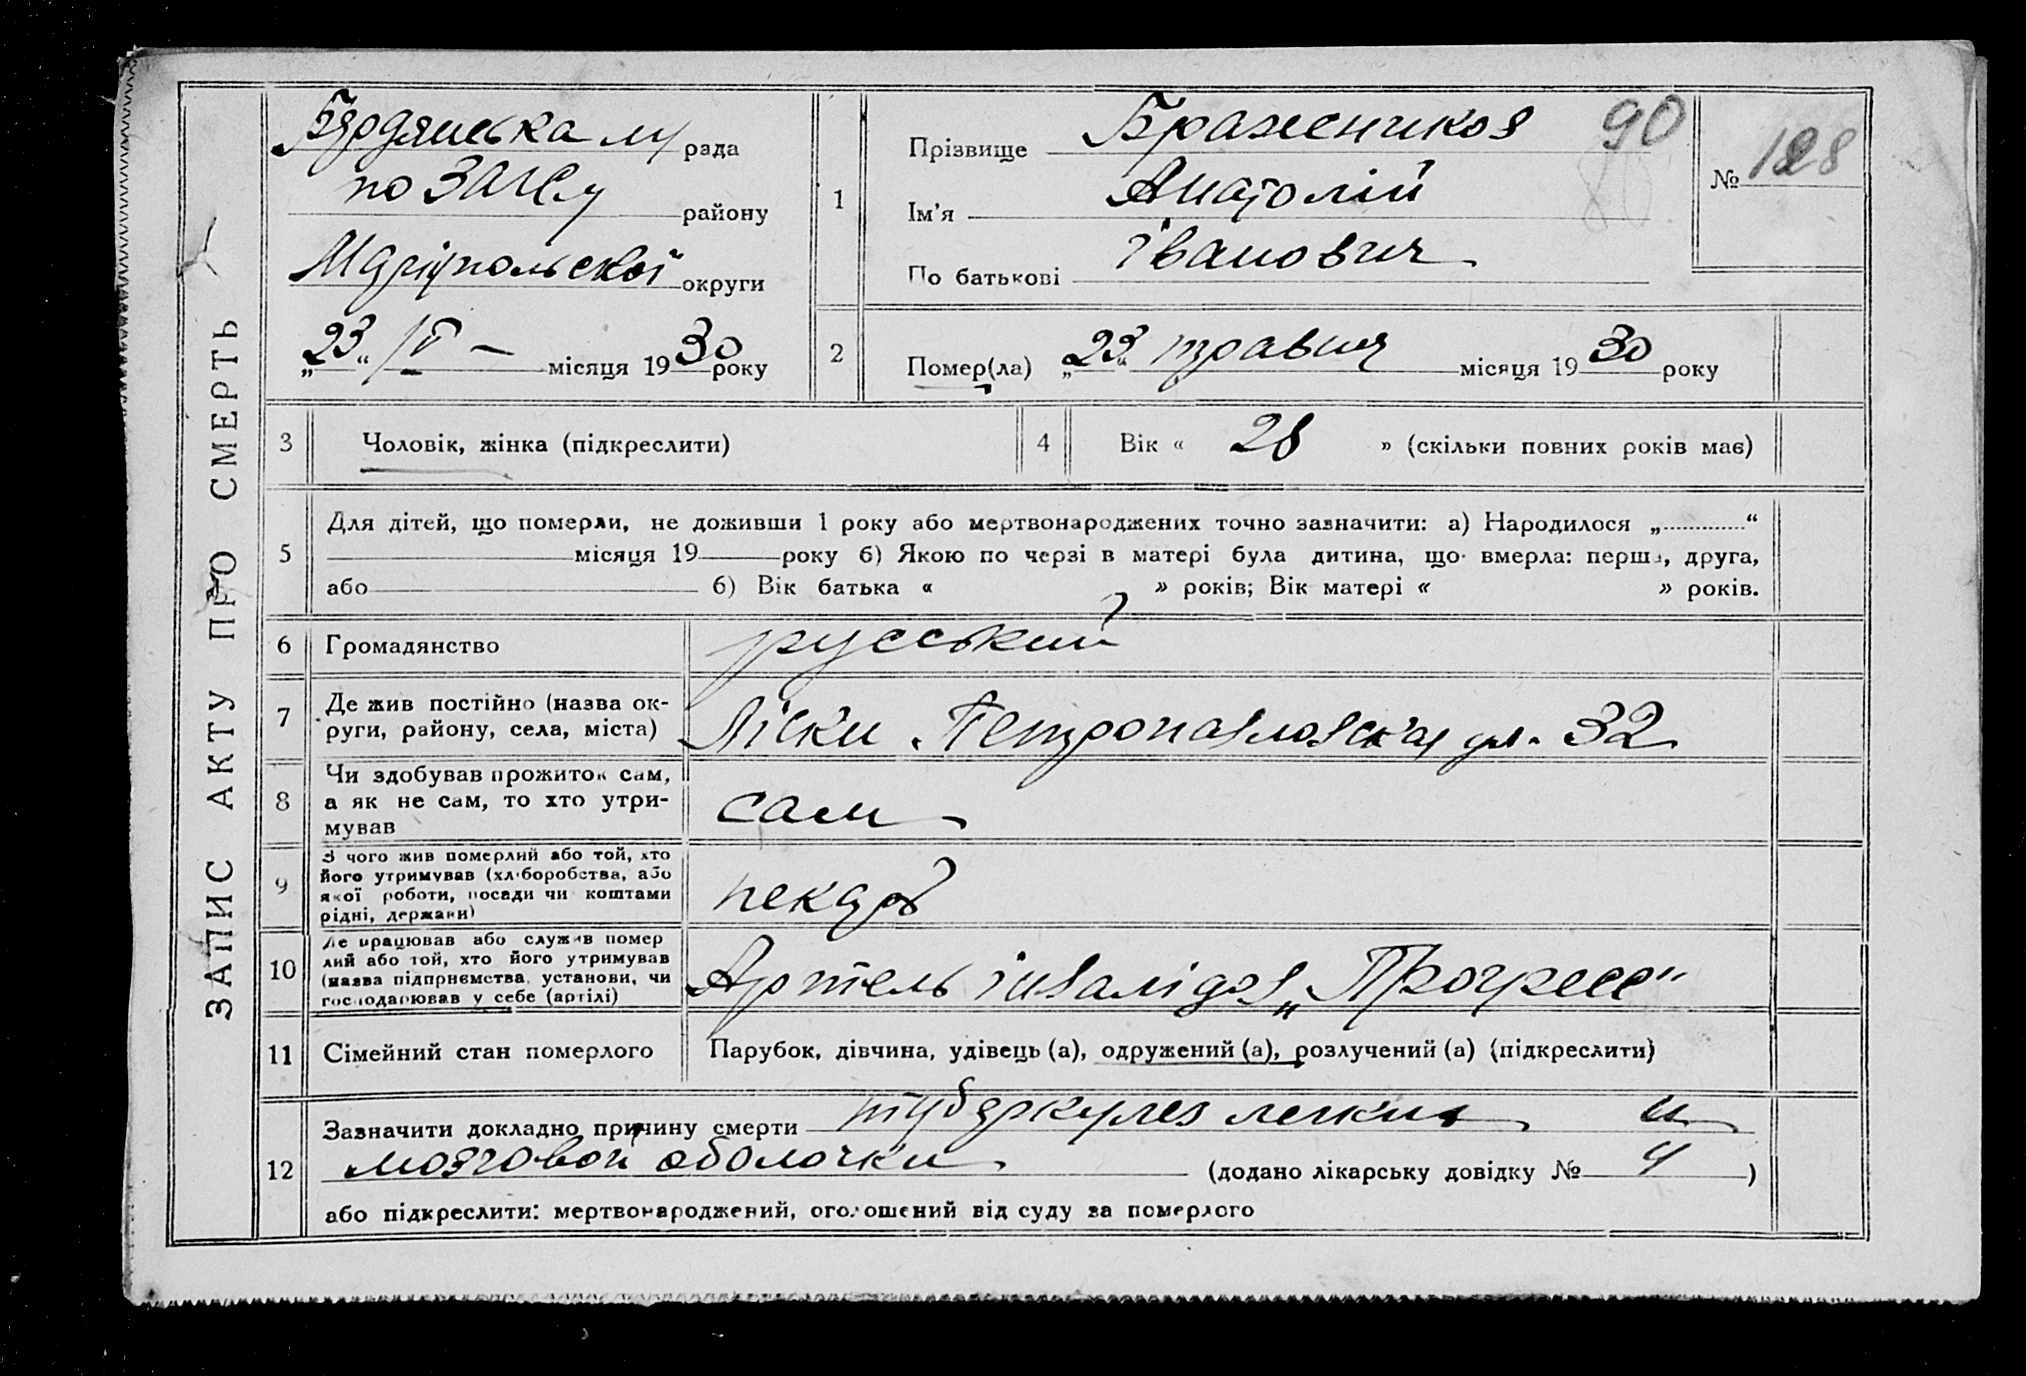 ЗАПИС АКТУ ПРО СМЕРТЬ
Бердянська м рада
по ЗАГСу району
Маріупольскої округи
„23“ V – місяця 1930 року
1
Прізвище Браженников
Ім'я Анатолій
По батькові Іванович
90
№ 128
2
Помер(ла) „23“ травня місяця 1930 року
3 Чоловік, жінка (підкреслити)
4 Вік « 28 » (скільки повних років має)
5
Для дітей, що померли, не доживши 1 року або мертвонароджених точно зазначити: а) Народилося „ “
місяця 19 року б) Якою по черзі в матері була дитина, що вмерла: перша, друга,
або б) Вік батька « » років; Вік матері « » років.
6 Громадянство русський
7 Де жив постійно (назва ок-
руги, району, села, міста) Ліски Петропавловская ул. 32
8 Чи здобував прожиток сам,
а як не сам, то хто утри-
мував
сам
9 З чого жив померлий або той, хто
його утримував (хліборобства, або
якої роботи, посади чи коштами
рідні, держави)
пекарь
10 Де працював або служив помер
лий або той, хто його утримував
(назва підприємства, установи, чи
господарював у себе (артілі)
Артель інвалідов „Прогресс“
11 Сімейний стан померлого Парубок, дівчина, удівець (а), одружений (а), розлучений (а) (підкреслити)
12 Зазначити докладно причину смерти туберкулез легких и
мозговой оболочки (додано лікарську довідку № 4 )
або підкреслити: мертвонароджений, оголошений від суду за померлого